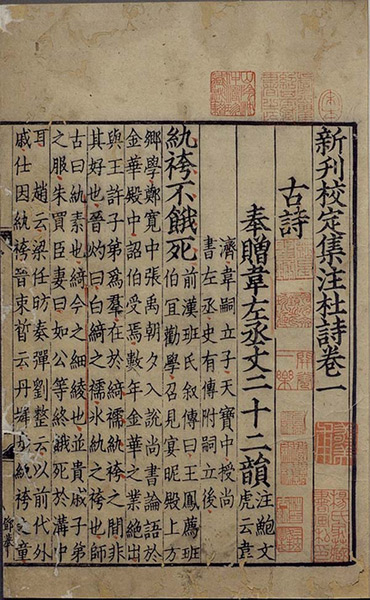 新刊校定集注杜詩卷一
古詩
奉贈韋左丞丈二十二韻
注鮑文
虎云韋
濟韋嗣立子天寶中授尚
書左丞史有傳附嗣立後
紈袴不餓死
前漢班氏叙傳曰王鳳薦班
伯冝勸學召見宴昵殿上方
鄉學鄭寛中張禹朝夕入說尚書論語於
金華殿中詔伯受焉數年金華之業絶出
與王許子弟爲羣在於綺襦紈袴之間非
其好也晉灼曰白綺之襦氷紈之袴也師
古曰紈素也綺今之細綾也並貴戚子弟
之服朱買臣妻曰如公等終餓死於溝中
耳 趙云梁任昉奏彈劉整云以前代外
戚仕因紈袴晉束晳云丹墀步紈袴之童